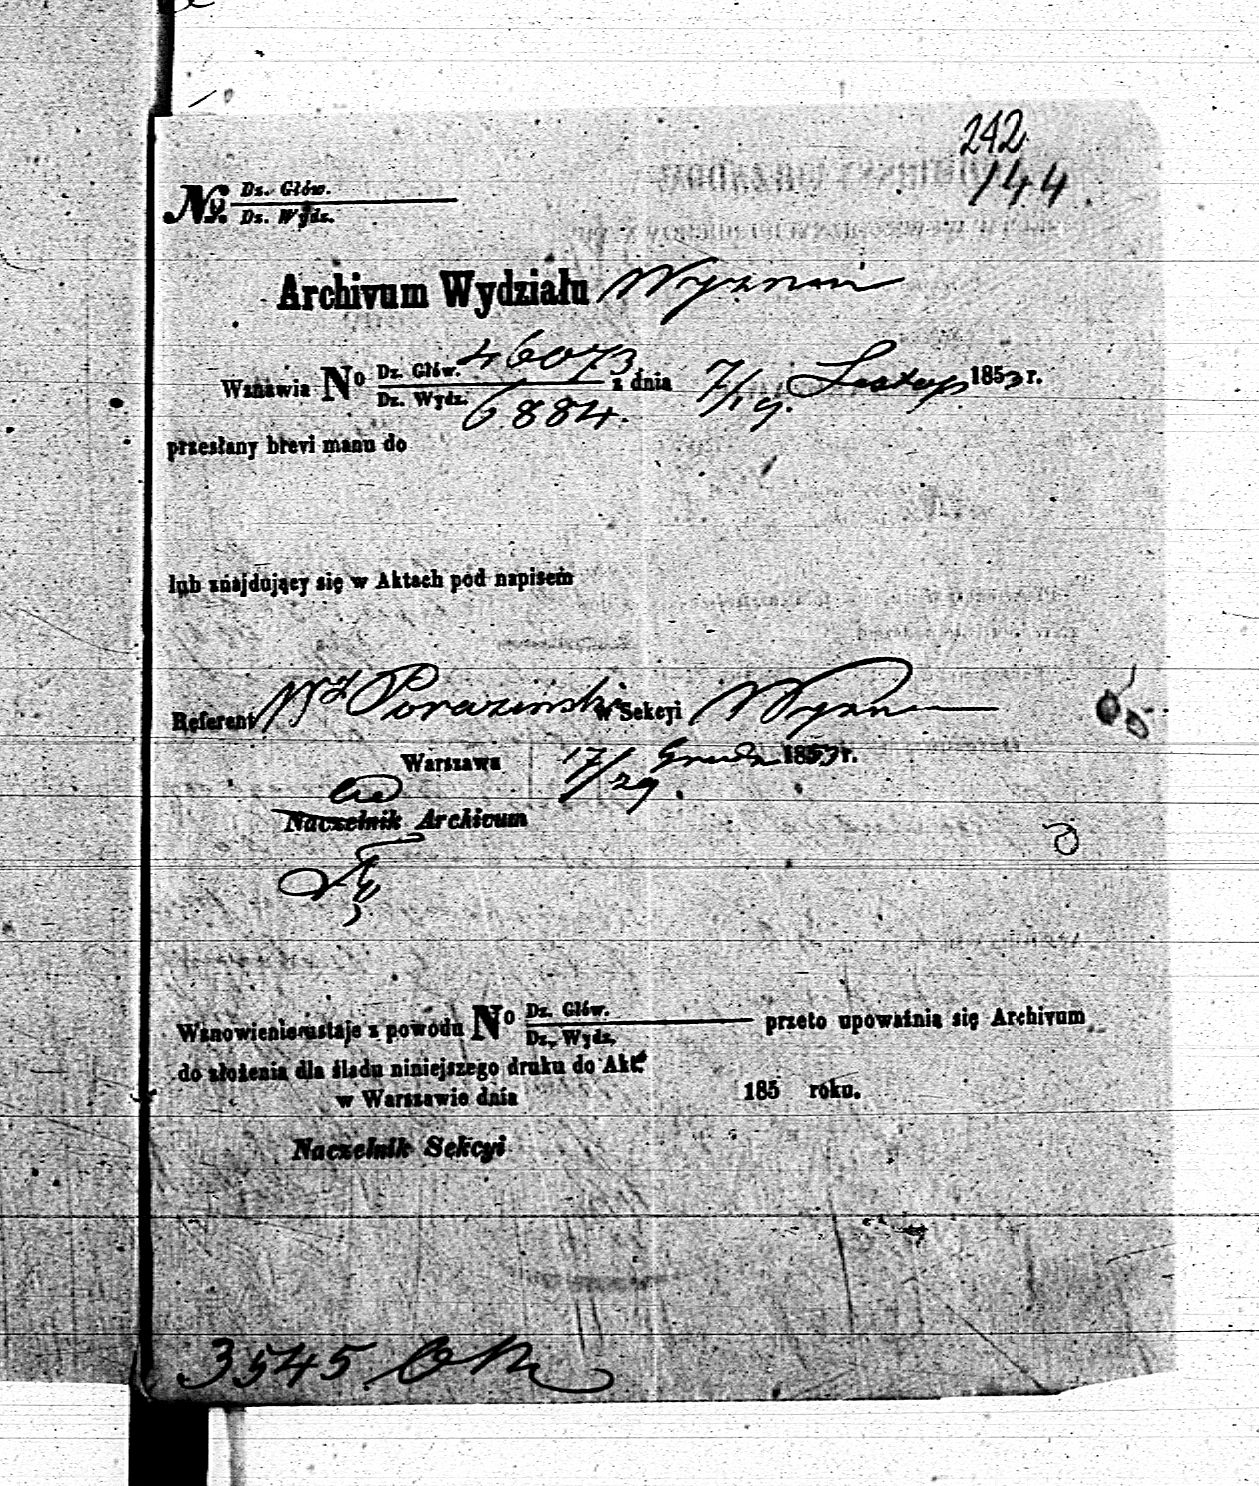 242
144
№ Dz. Głów.
Dz. Wydz.
Archivum Wydziału Wyznań
Wznawia No Dz. Głów. 46073 z dnia 7/19. Listop 1853 r.
Dz. Wydz. 6884.
przesłany brevi manu do
lub znajdujący się w Aktach pod napisem
Referent Porazinski w Sekcyi Wyznań
Warszawa 17/29. Grud 1853 r.
Naczelnik Archivum
Wznowienie ustaje z powodu No Dz. Głów. przeto upoważnia się Archivum
Dz. Wydz.
do złożenia dla śladu niniejszego druku do Akt
w Warszawie dnia 185 roku.
Naczelnik Sekcyi
3545